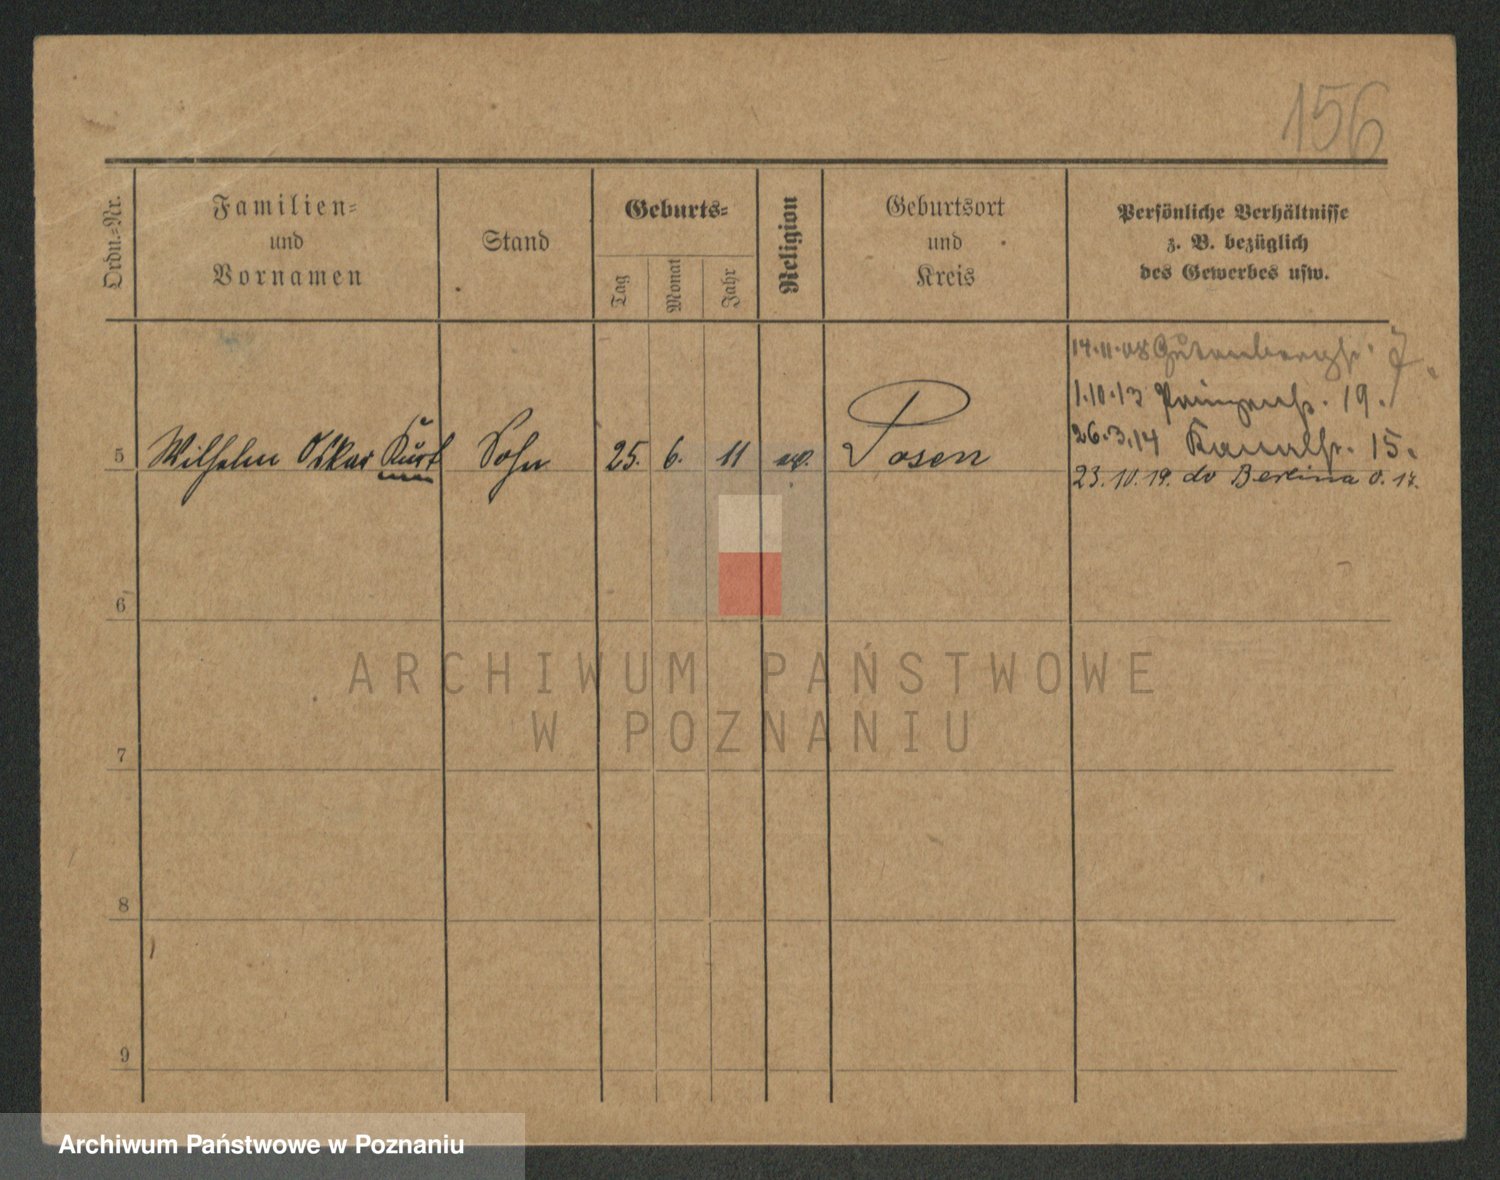 156
Ordn.-Nr.
Familien-
und
Vornamen
Stand
Geburts-
Tag
Monat
Jahr
Religion
Geburtsort
und
Kreis
Persönliche Verhältnisse
z. B. bezüglich
des Gewerbes usw.
14.11.08 Gutenbergstr. 7
1.10.13 Prinzenstr. 19.
26.3.14 Kanalstr. 15.
5 Wilhelm Oskar Kurt Sohn 25. 6. 11 ev. Posen
23.10.19. do Berlina O. 17.
6
7
8
9
ARCHIWUM PAŃSTWOWE
W POZNANIU
Archiwum Państwowe w Poznaniu